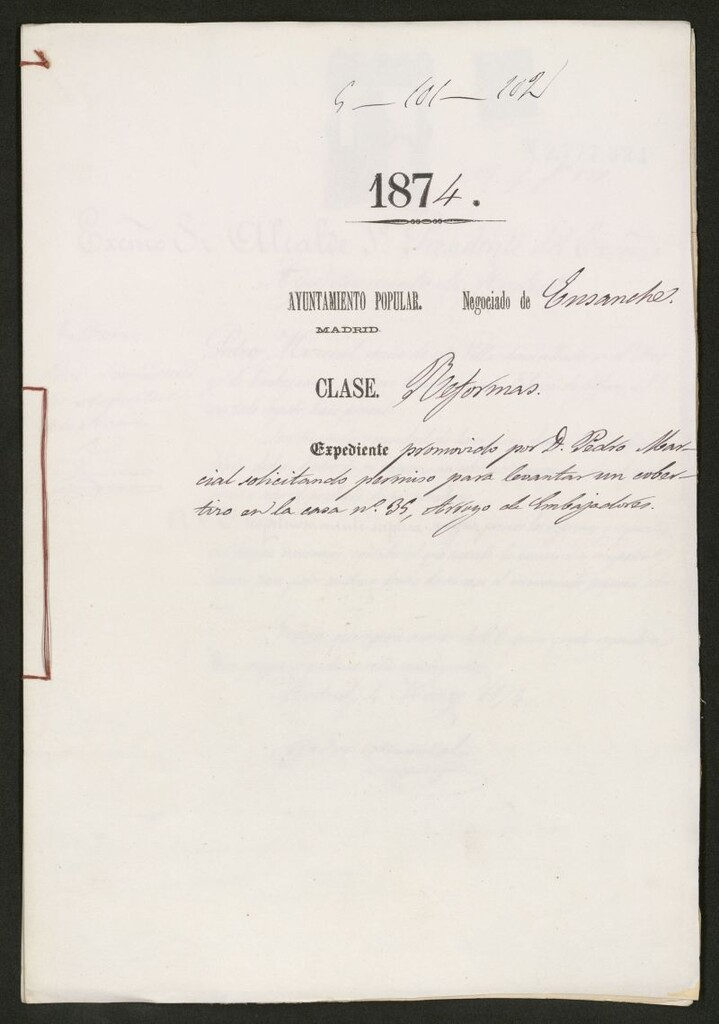 5 — 101 — 102
1874.
AYUNTAMIENTO POPULAR. Negociado de Ensanche.
MADRID.
CLASE. Reformas.
Expediente promovido por D. Pedro Mar-
cial solicitando permiso para levantar un cober-
tizo en la casa nº. 35, Arroyo de Embajadores.